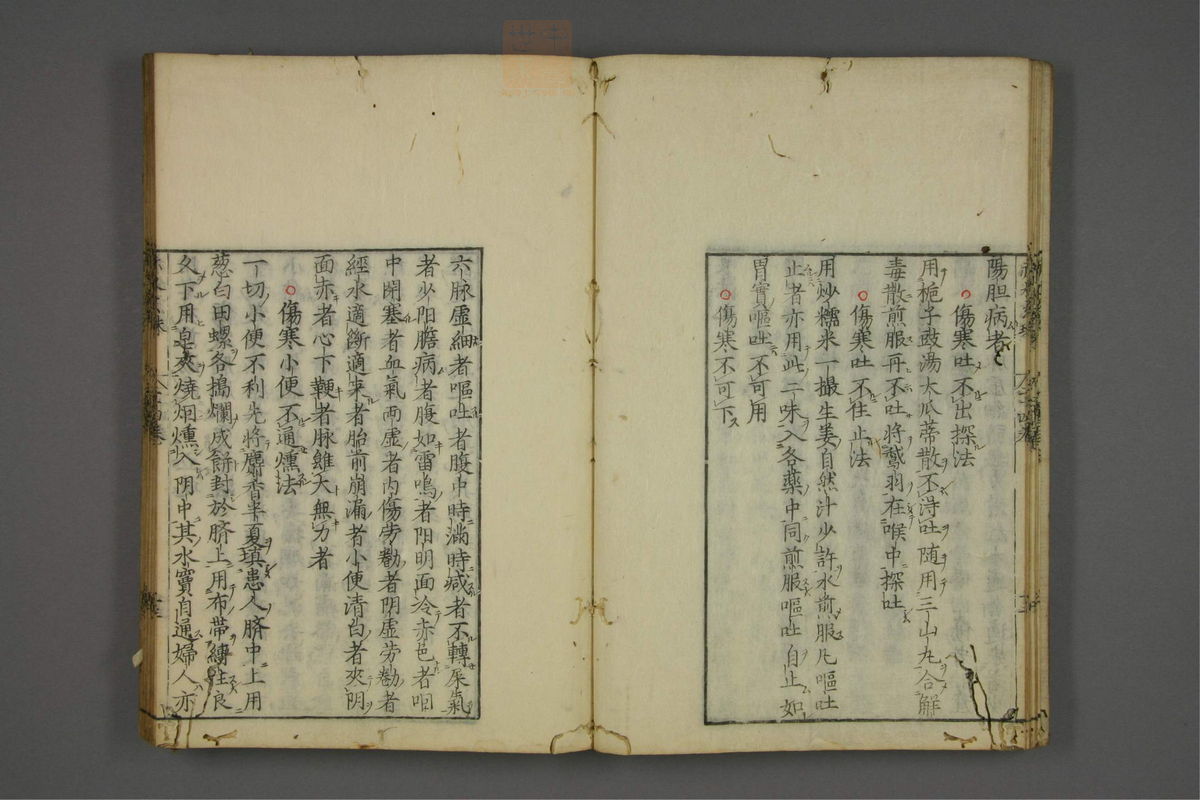 陽胆病者
傷寒吐不出探法
用梔子豉湯大瓜蒂散不得吐随用三山丸合觧
毒散煎服再不吐将鵞羽在喉中探吐
傷寒吐不住止法
用炒糯米一撮生姜自然汁少許水煎服凡嘔吐
止者亦用此二味入各薬中同煎服嘔吐自止如
胃實嘔吐不可用
傷寒不可下
六脉虚細者嘔吐者腹中時滿時減者不轉屎氣
者少阳膽病者腹如雷鳴者阳明面冷赤色者咽
中閉塞者血氣両虚者内傷劳勧者阴虚劳勧者
經水適断適来者胎前崩漏者小便清白者夾阴
面赤者心下鞕者脉雖大無力者
傷寒小便不通燻法
一切小便不利先将麝香半夏填患人臍中上用
葱白田螺各搗爛成餅封於臍上用布帯縛住良
久下用皂夾燒烟燻入阴中其水竇自通婦人亦